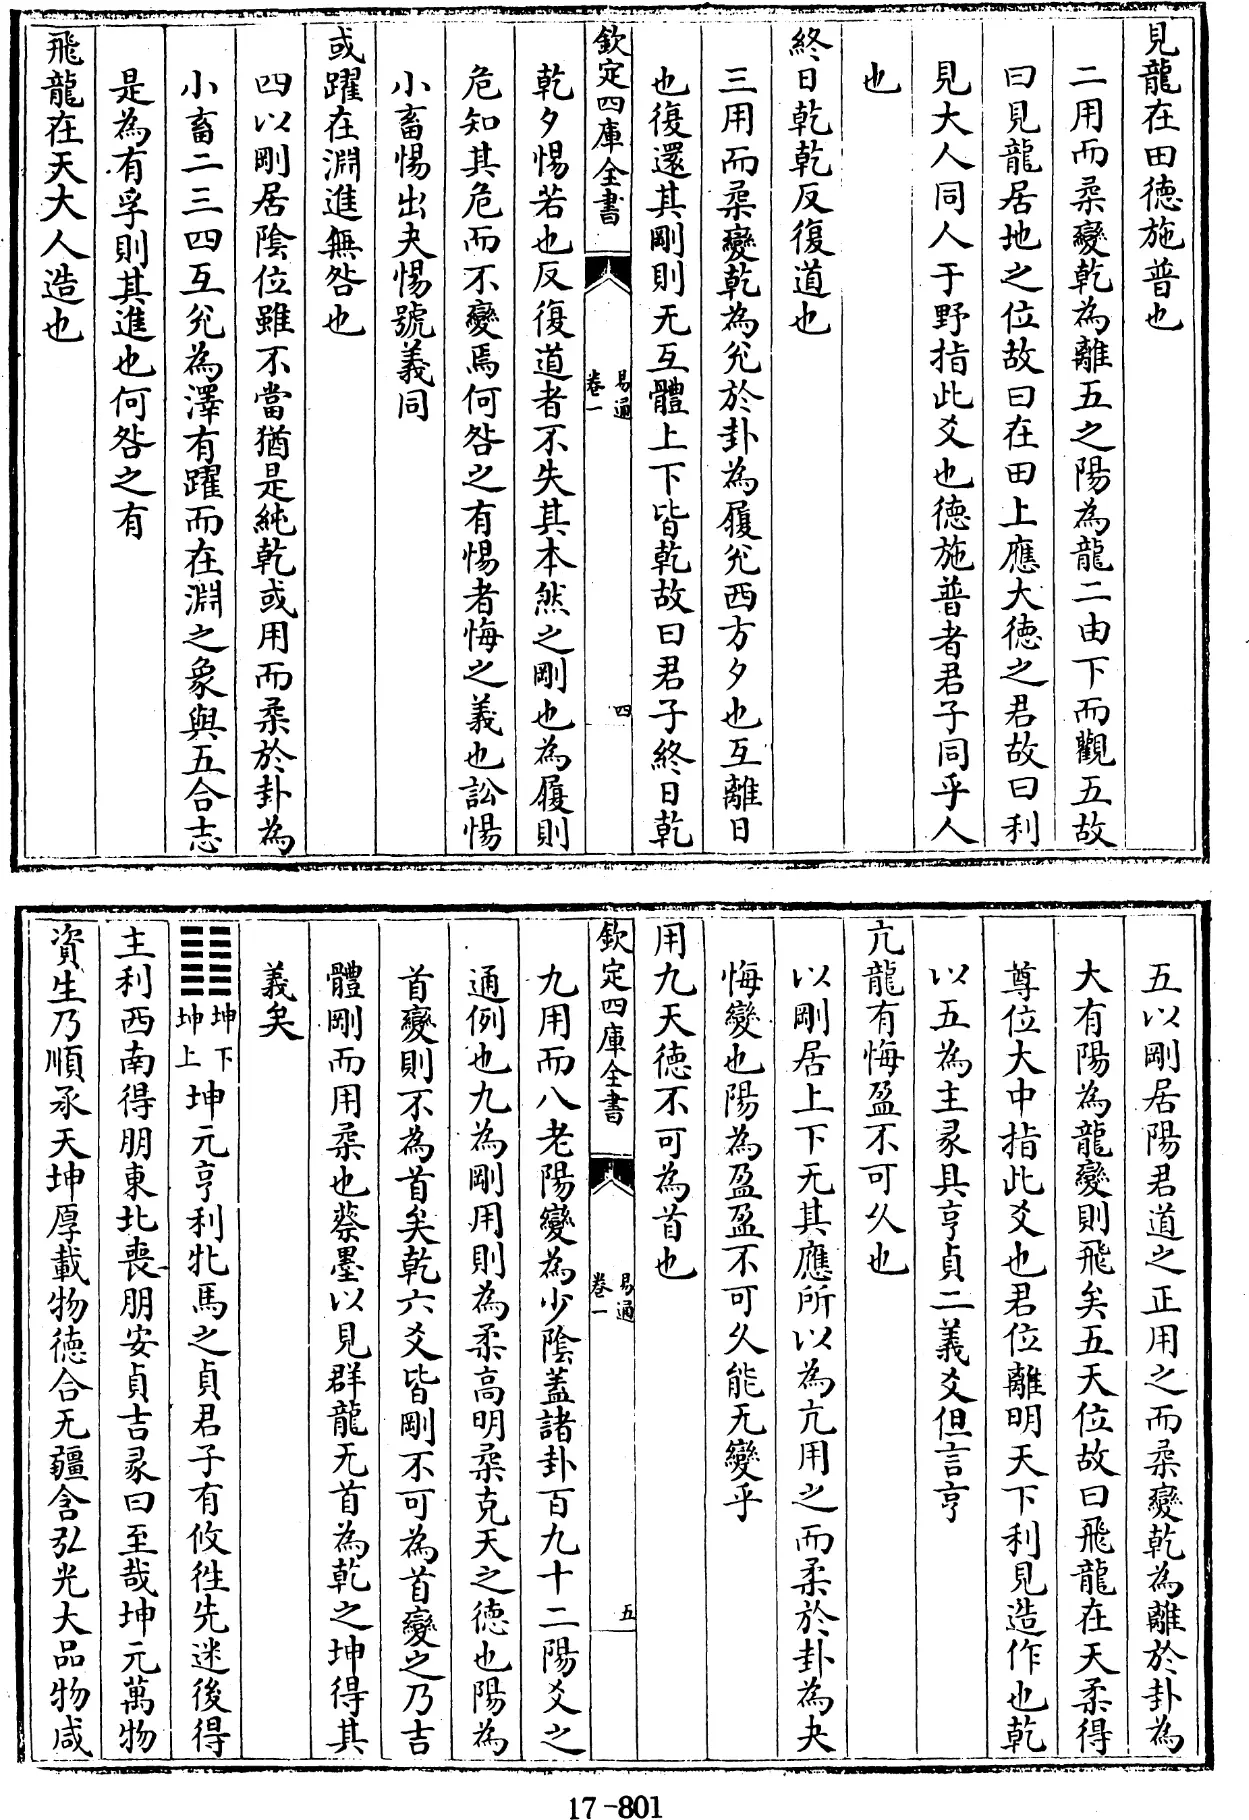 見龍在田德施普也
二用而柔變乾為離五之陽為龍二由下而觀五故
曰見龍居地之位故曰在田上應大德之君故曰利
見大人同人于野指此爻也德施普者君子同乎人
也
終日乾乾反復道也
三用而柔變乾為兊於卦為履兊西方夕也互離日
也復還其剛則无互體上下皆乾故曰君子終日乾
欽定四庫全書
易通
卷一
四
乾夕惕若也反復道者不失其本然之剛也為履則
危知其危而不變焉何咎之有惕者悔之義也訟惕
小畜惕出夬惕號義同
或躍在淵進無咎也
四以剛居陰位雖不當猶是純乾或用而柔於卦為
小畜二三四互兊為澤有躍而在淵之象與五合志
是為有孚則其進也何咎之有
飛龍在天大人造也
五以剛居陽君道之正用之而柔變乾為離於卦為
大有陽為龍變則飛矣五天位故曰飛龍在天柔得
尊位大中指此爻也君位離明天下利見造作也乾
以五為主彖具亨貞二義爻但言亨
亢龍有悔盈不可久也
以剛居上下无其應所以為亢用之而柔於卦為夬
悔變也陽為盈盈不可久能无變乎
用九天德不可為首也
欽定四庫全書
易通
卷一
五
九用而八老陽變為少陰蓋諸卦百九十二陽爻之
通例也九為剛用則為柔高明柔克天之德也陽為
首變則不為首矣乾六爻皆剛不可為首變之乃吉
體剛而用柔也蔡墨以見群龍无首為乾之坤得其
義矣
坤下坤上坤元亨利牝馬之貞君子有攸往先迷後得
主利西南得朋東北喪朋安貞吉彖曰至哉坤元萬物
資生乃順承天坤厚載物德合无疆含弘光大品物咸
17-801